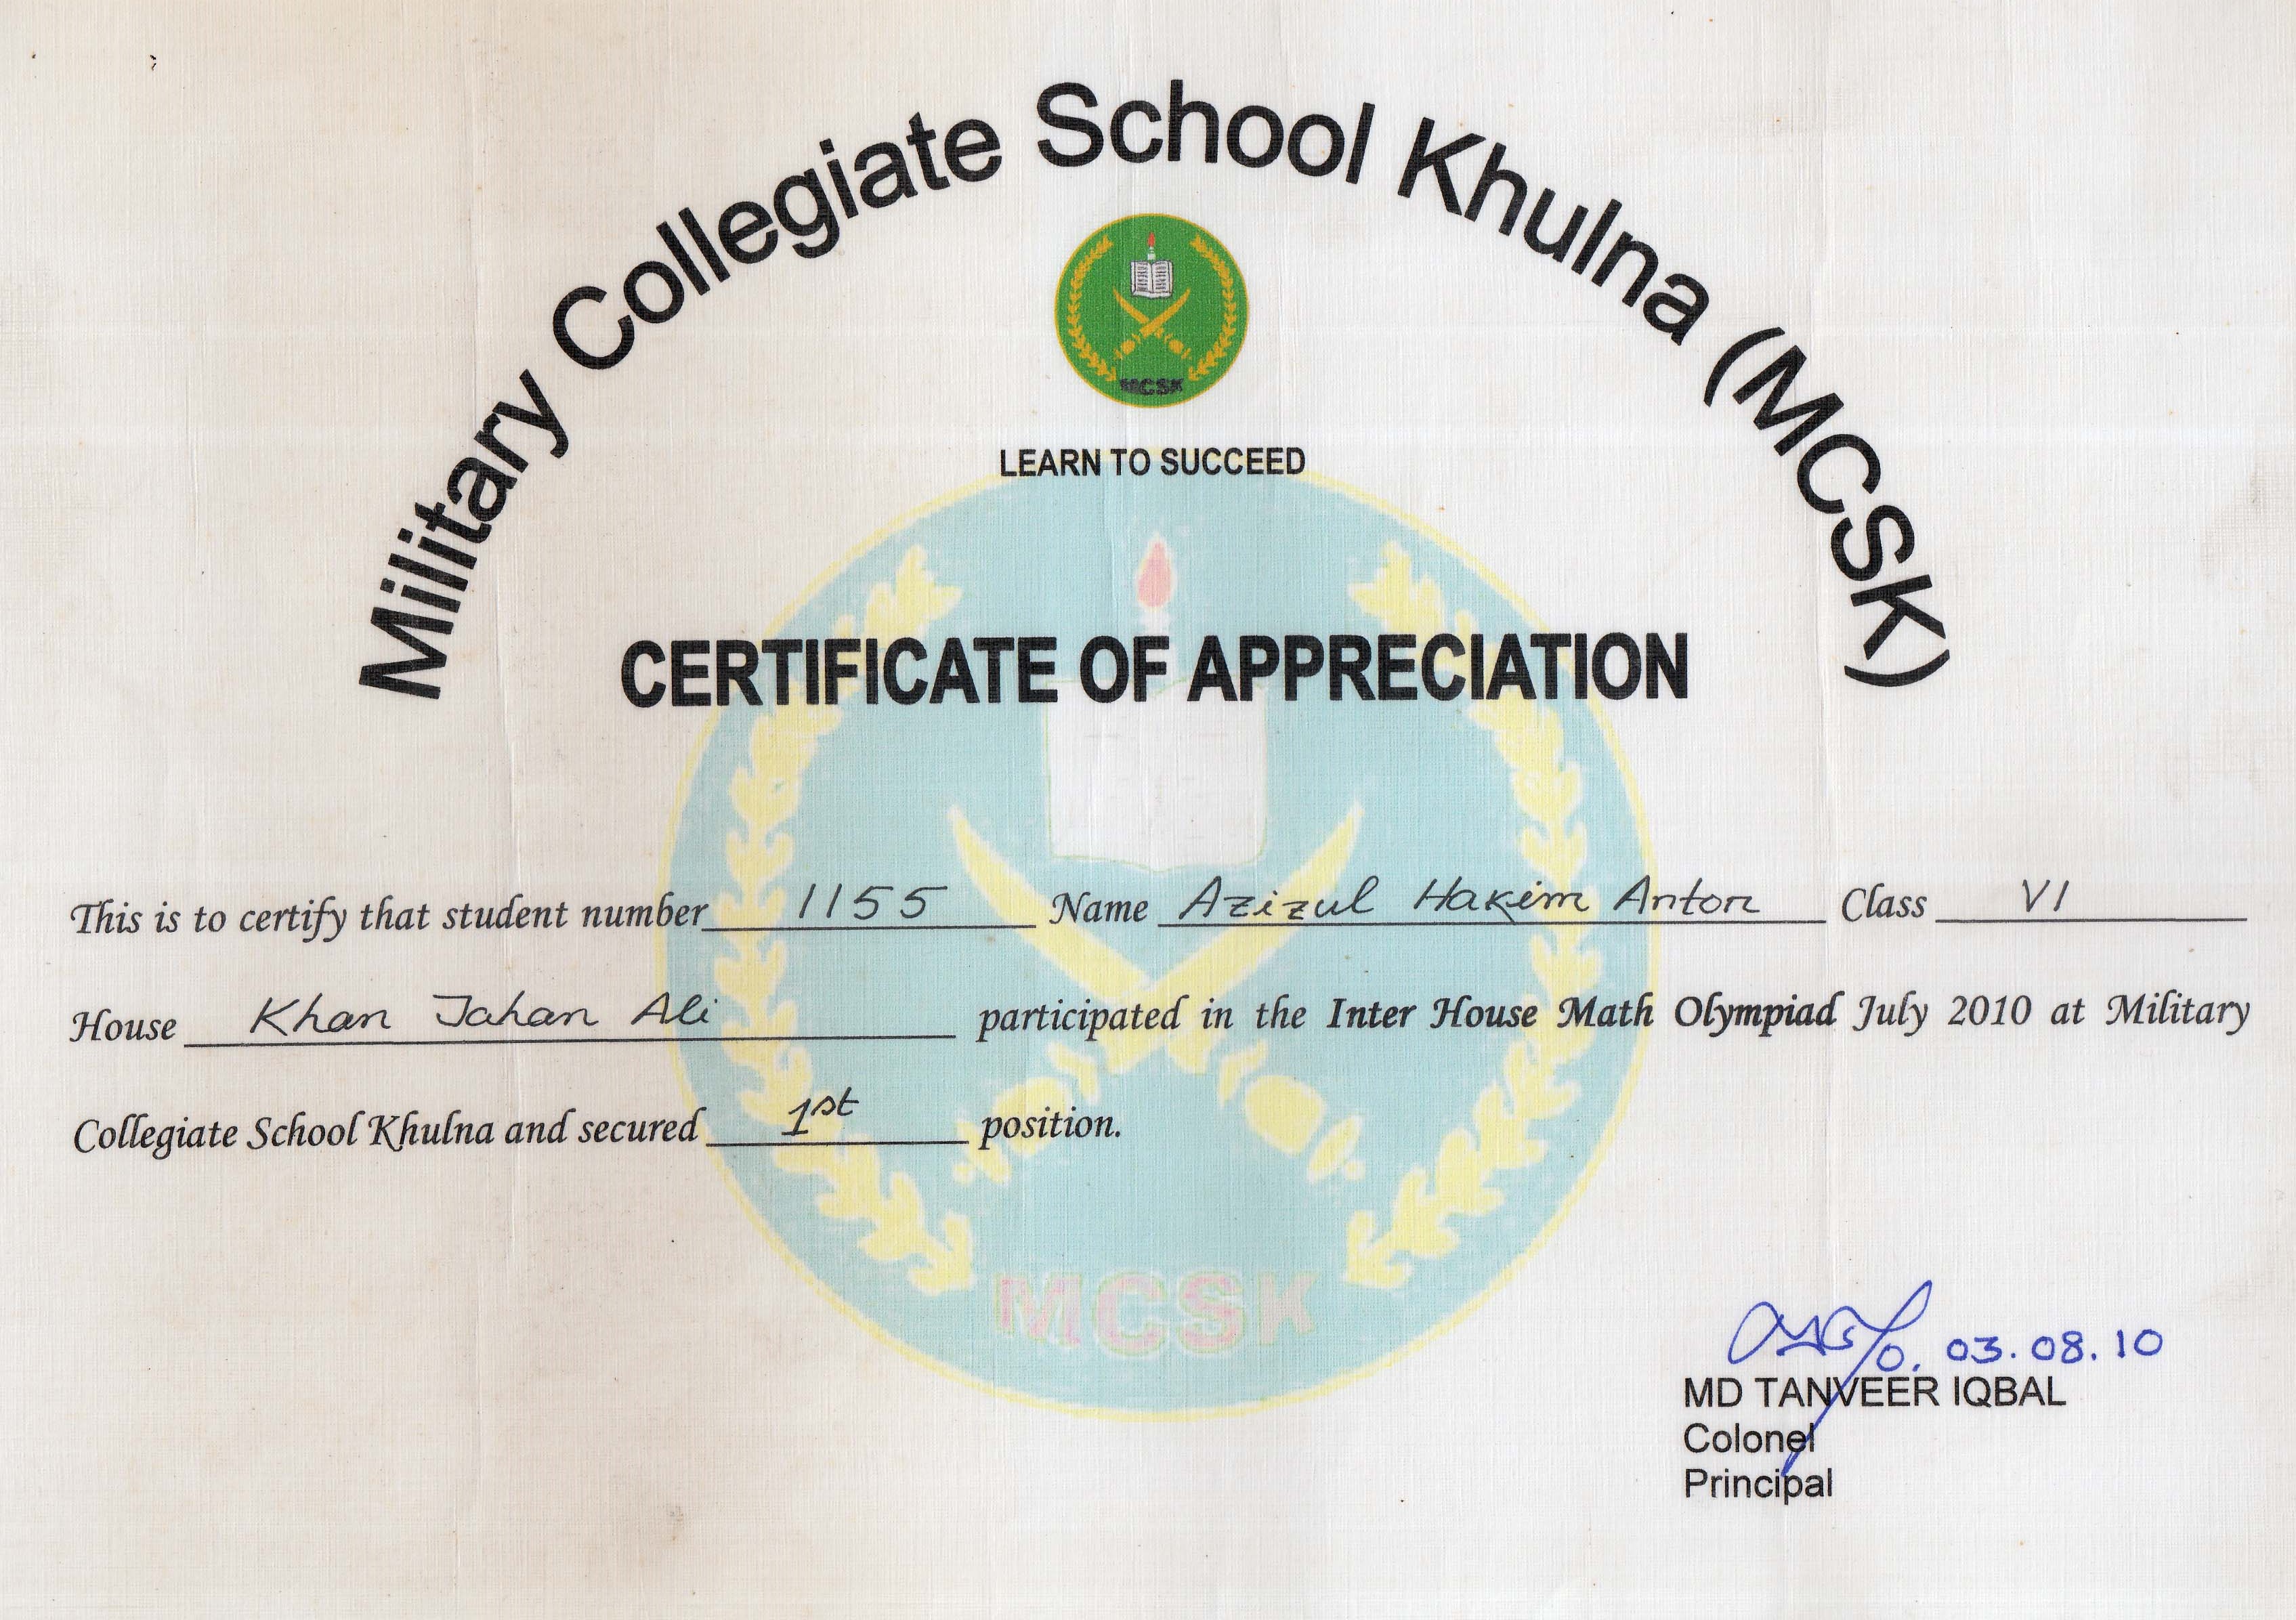 Military Collegiate School Khulna (MCSK)
MCSK
LEARN TO SUCCEED
CERTIFICATE OF APPRECIATION
This is to certify that student number 1155 Name Azizul Hakim Anton Class VI
House Khan Jahan Ali participated in the Inter House Math Olympiad July 2010 at Military
Collegiate School Khulna and secured 1st position.
MCSK
03.08.10
MD TANVEER IQBAL
Colonel
Principal